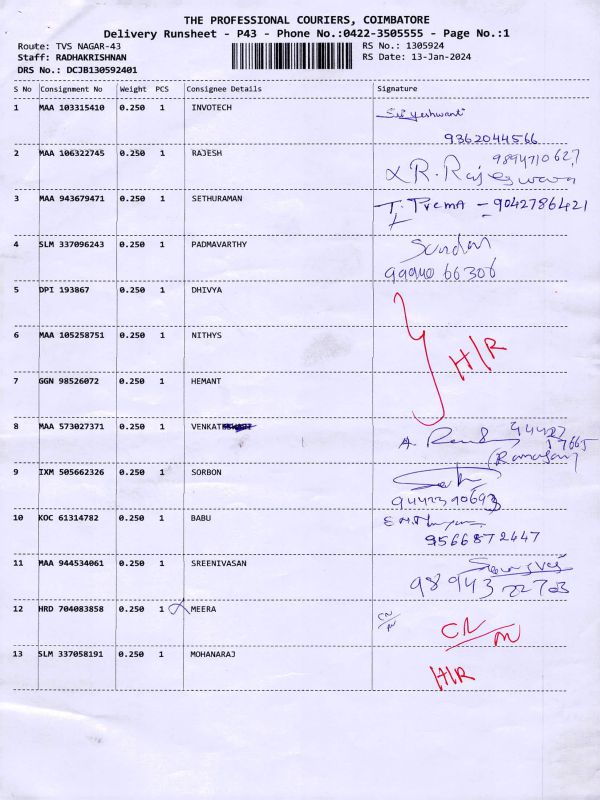 THE PROFESSIONAL COURIERS, COIMBATORE
Delivery Runsheet - P43 - Phone No.:0422-3505555 - Page No.:1
Route: TVS NAGAR-43 RS No.: 1305924
Staff: RADHAKRISHNAN RS Date: 13-Jan-2024
DRS No.: DCJB130592401
S No Consignment No Weight PCS Consignee Details Signature
1 MAA 103315410 0.250 1 INVOTECH
9362044566
2 MAA 106322745 0.250 1 RAJESH 9894710627
R. Rajeswari
3 MAA 943679471 0.250 1 SETHURAMAN T. Prema - 9042786421
4 SLM 337096243 0.250 1 PADMAVARTHY Sundar
99940 66306
5 DPI 193867 0.250 1 DHIVYA
6 MAA 105258751 0.250 1 NITHYS H/R
7 GGN 98526072 0.250 1 HEMANT
8 MAA 573027371 0.250 1 VENKAT 94427
17665
9 IXM 505662326 0.250 1 SORBON
9442390693
10 KOC 61314782 0.250 1 BABU
9566872447
11 MAA 944534061 0.250 1 SREENIVASAN
98943 22703
12 HRD 704083858 0.250 1 MEERA CN/M CN/M
13 SLM 337058191 0.250 1 MOHANARAJ H/R